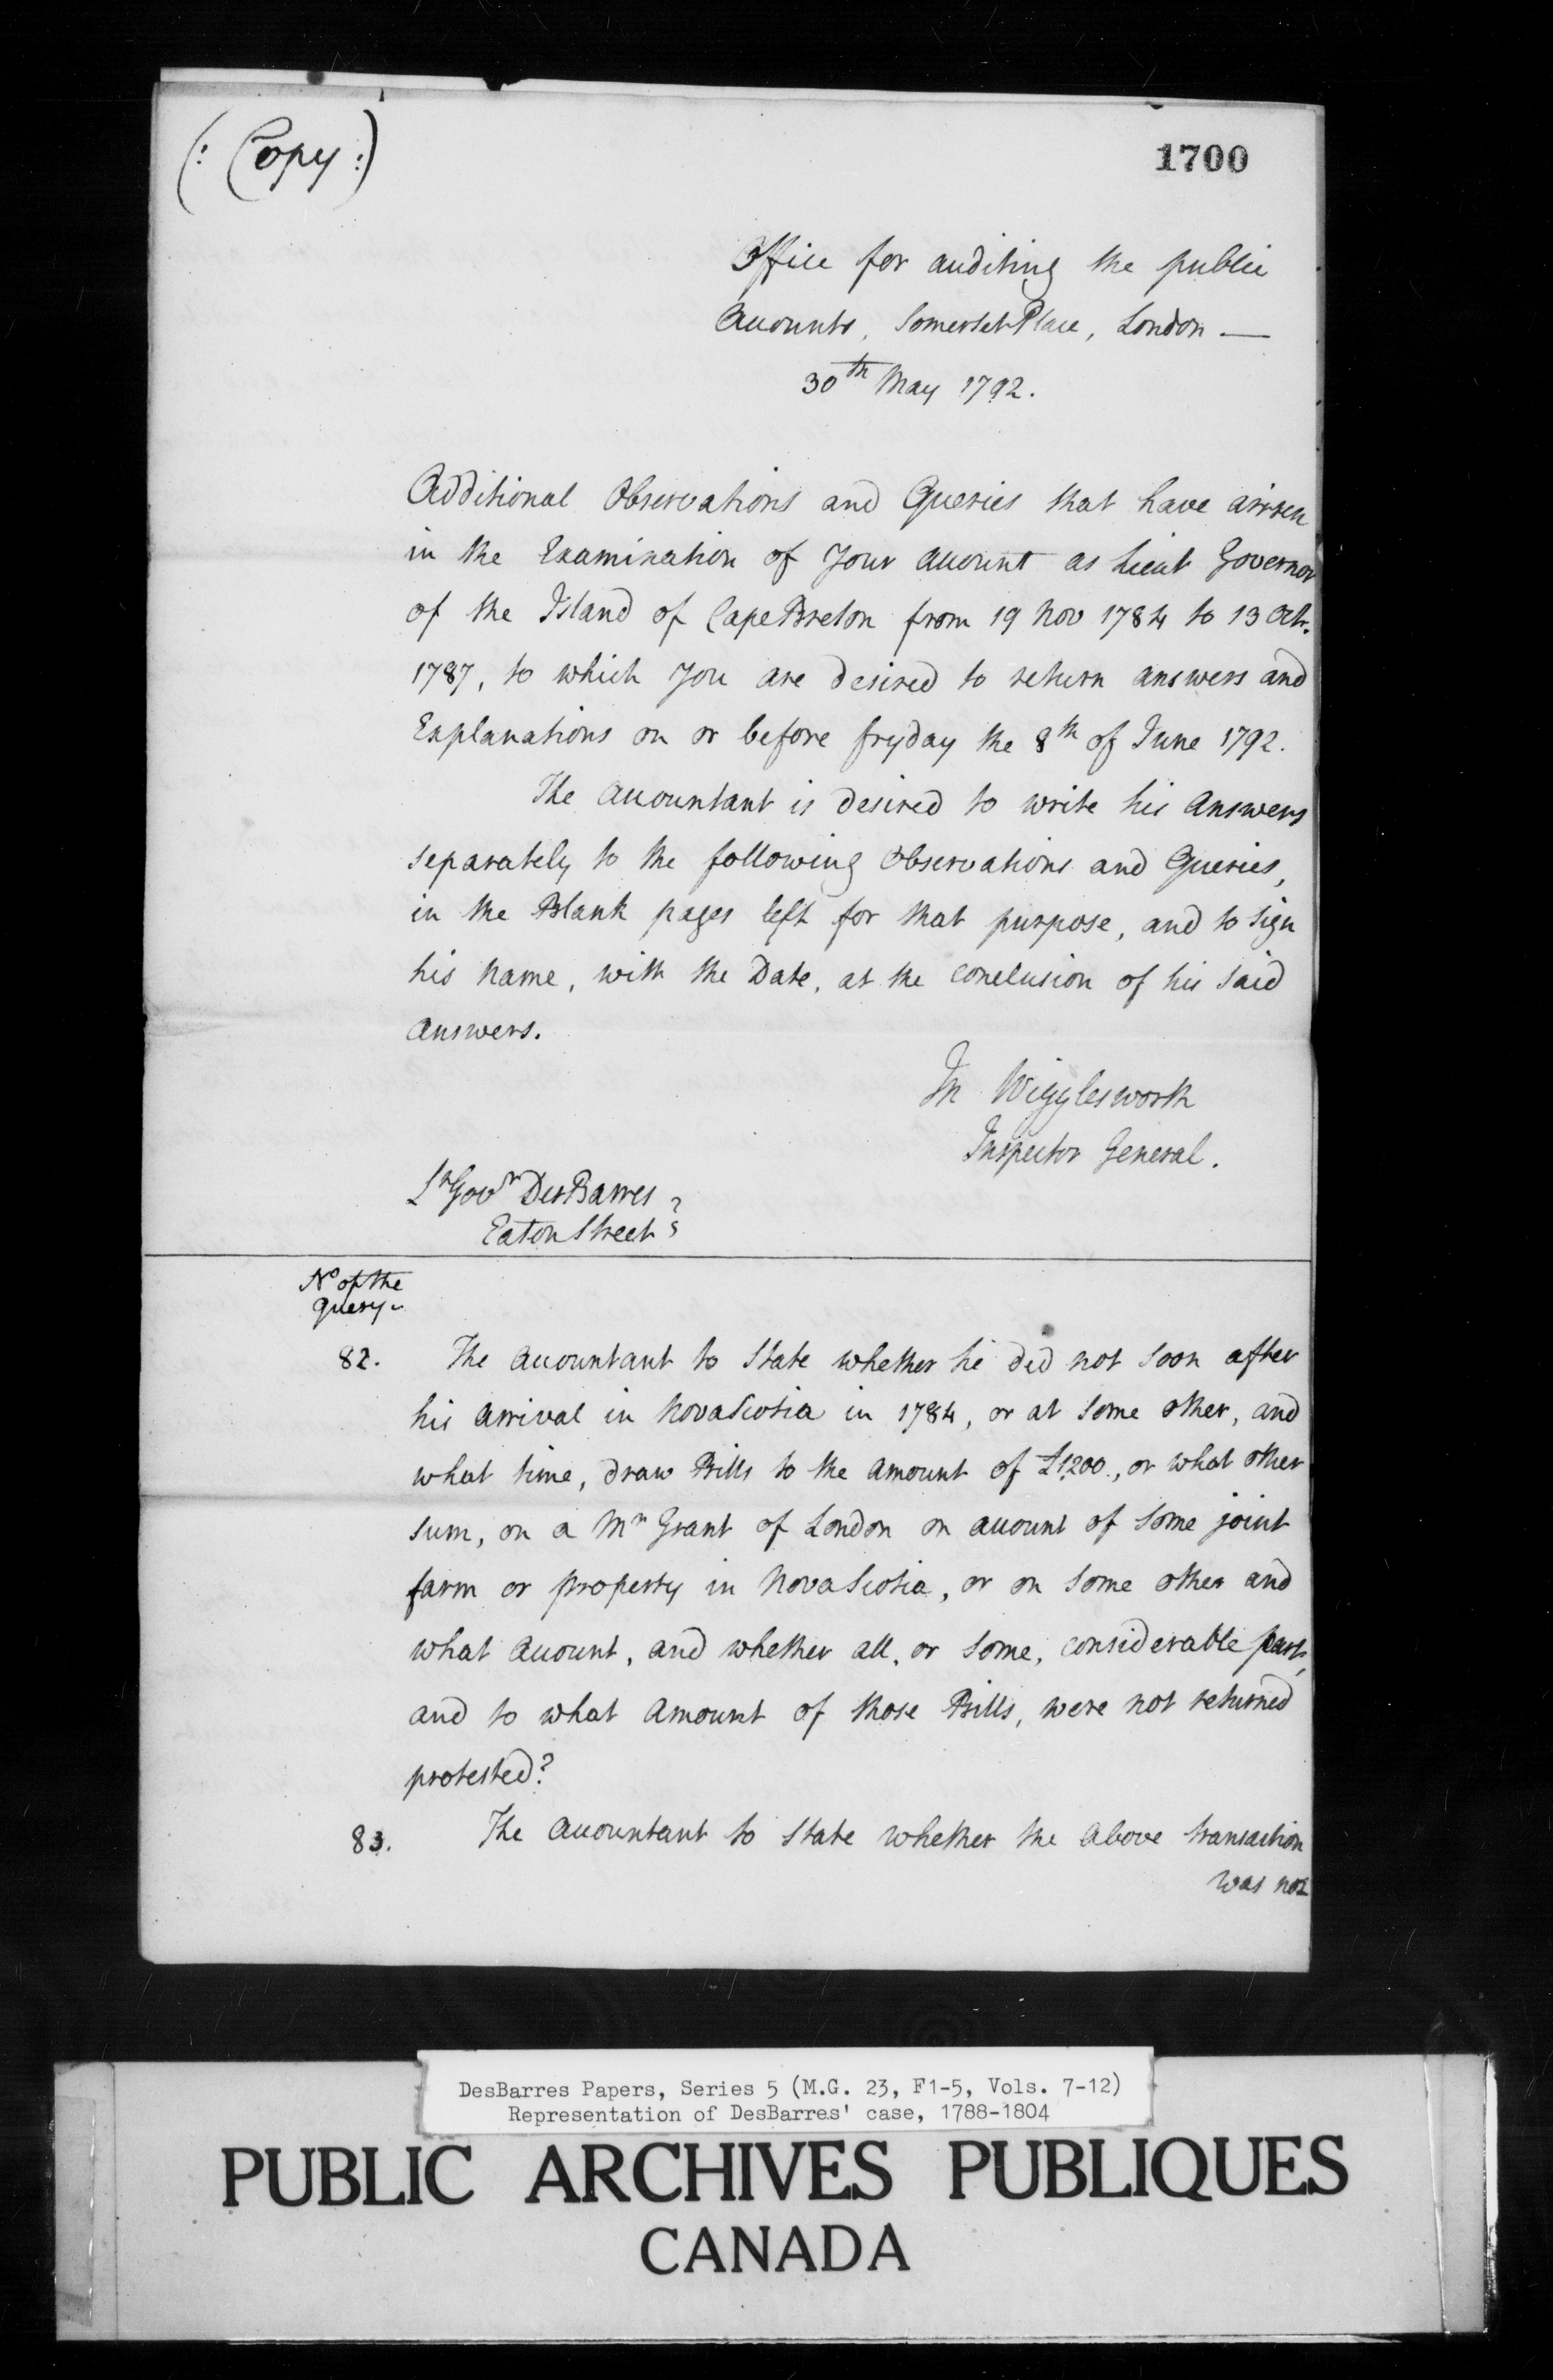 (: Copy :)
1700
Office for auditing the public
Accounts, Somerset Place, London —
30th May 1792.
Additional Observations and Queries that have arisen
in the Examination of Your Account as Lieut Governor
of the Island of Cape Breton from 19 Nov 1784 to 13 Octr.
1787, to which You are desired to return answers and
Explanations on or before fryday the 8th of June 1792.
The Accountant is desired to write his Answers
separately to the following Observations and Queries,
in the Blank pages left for that purpose, and to sign
his Name, with the Date, at the conclusion of his said
Answers.
Jn Wigglesworth
Inspector General.
Lt Govr DesBarres
Eaton Street
No of the
Query
82. The Accountant to State whether he did not soon after
his Arrival in Nova Scotia in 1784, or at some other, and
what time, draw Bills to the Amount of £1,200., or what other
sum, on a Mr Grant of London on account of some joint
farm or property in Nova Scotia, or on some other and
what Account, and whether all, or some, considerable part,
and to what Amount of those Bills, were not returned
protested?
83. The Accountant to State whether the Above transaction
was not
DesBarres Papers, Series 5 (M.G. 23, F1-5, Vols. 7-12)
Representation of DesBarres' case, 1788-1804
PUBLIC ARCHIVES PUBLIQUES
CANADA